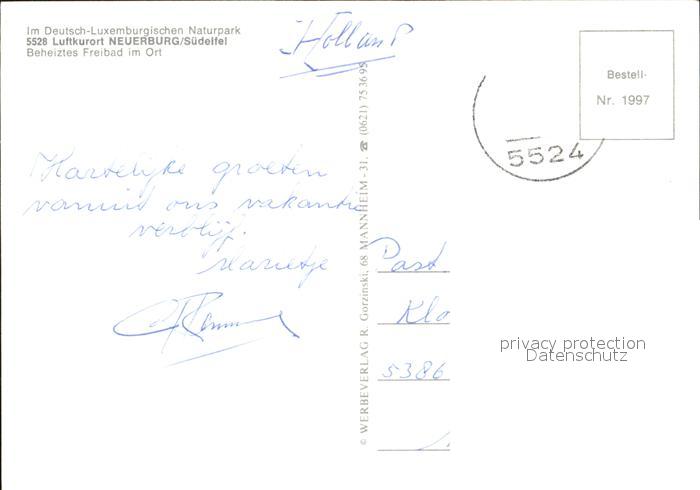 Im Deutsch-Luxemburgischen Naturpark
5528 Luftkurort NEUERBURG/Südeifel
Beheiztes Freibad im Ort
Holland
Bestell-
Nr. 1997
5524
Hartelijke groeten
vanuit ons vakantie
verblijf.
Marietje
© WERBEVERLAG R. Gorzinski, 68 MANNHEIM - 31, ☎ (0621) 75 36 95
Past
Kla
5386
privacy protection
Datenschutz